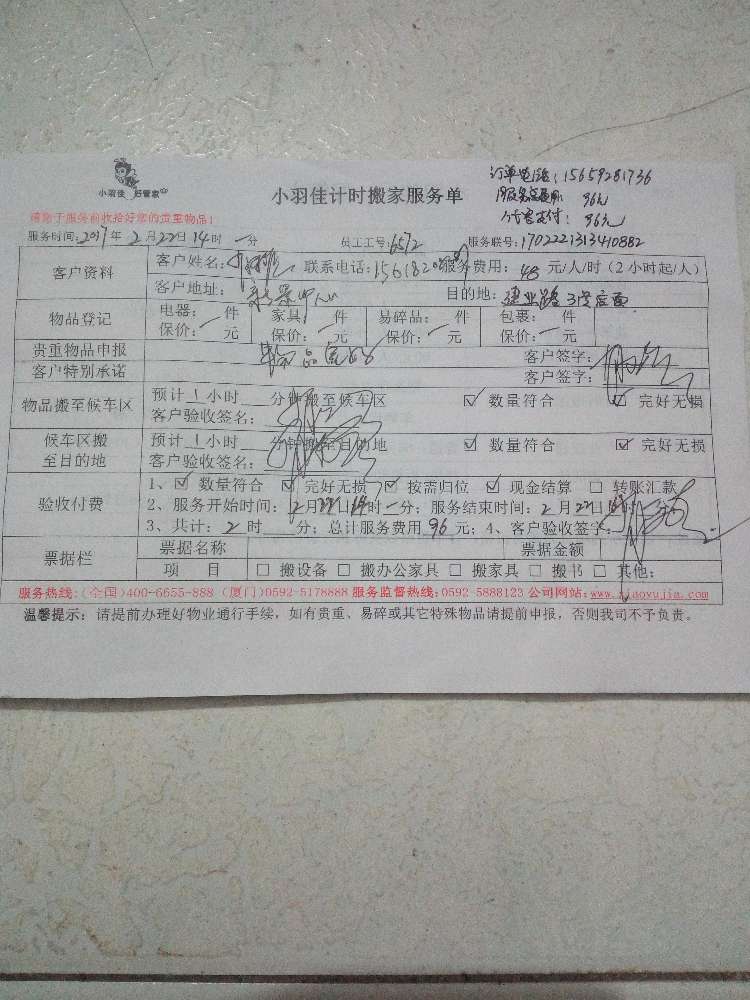 小羽佳 好管家
小羽佳计时搬家服务单
订单电话：15659281736
服务总费用 96元
代客支付：96元
请您于服务前收拾好您的贵重物品！
服务时间：2017年2月22日14时一分 员工工号：6572 服务联号：1702221313410882
客户资料 客户姓名： 联系电话： 服务费用：48元/人/时（2小时起/人）
客户地址： 目的地：建业路3号店面
物品登记 电器：件 家具：件 易碎品：件 包裹：件
保价：一元 保价：一元 保价：一元 保价：一元
贵重物品申报 客户签字：
客户特别承诺 物品完好 客户签字：
物品搬至候车区 预计1小时 分钟搬至候车区 ☑ 数量符合 ☑ 完好无损
客户验收签名：
候车区搬至目的地 预计1小时 分钟搬至目的地 ☑ 数量符合 ☑ 完好无损
客户验收签名：
验收付费 1、☑ 数量符合 ☑ 完好无损 ☑ 按需归位 ☑ 现金结算 □ 转账汇款
2、服务开始时间：2月22日14时一分；服务结束时间：2月22日 时
3、共计：2时 分；总计服务费用96元；4、客户验收签字：
票据栏 票据名称 票据金额
项目 □ 搬设备 □ 搬办公家具 □ 搬家具 □ 搬书 □ 其他：
服务热线：(全国)400-6655-888 (厦门)0592-5178888 服务监督热线：0592-5888123 公司网站：www.xiaoyujia.com
温馨提示：请提前办理好物业通行手续，如有贵重、易碎或其它特殊物品请提前申报，否则我司不予负责。